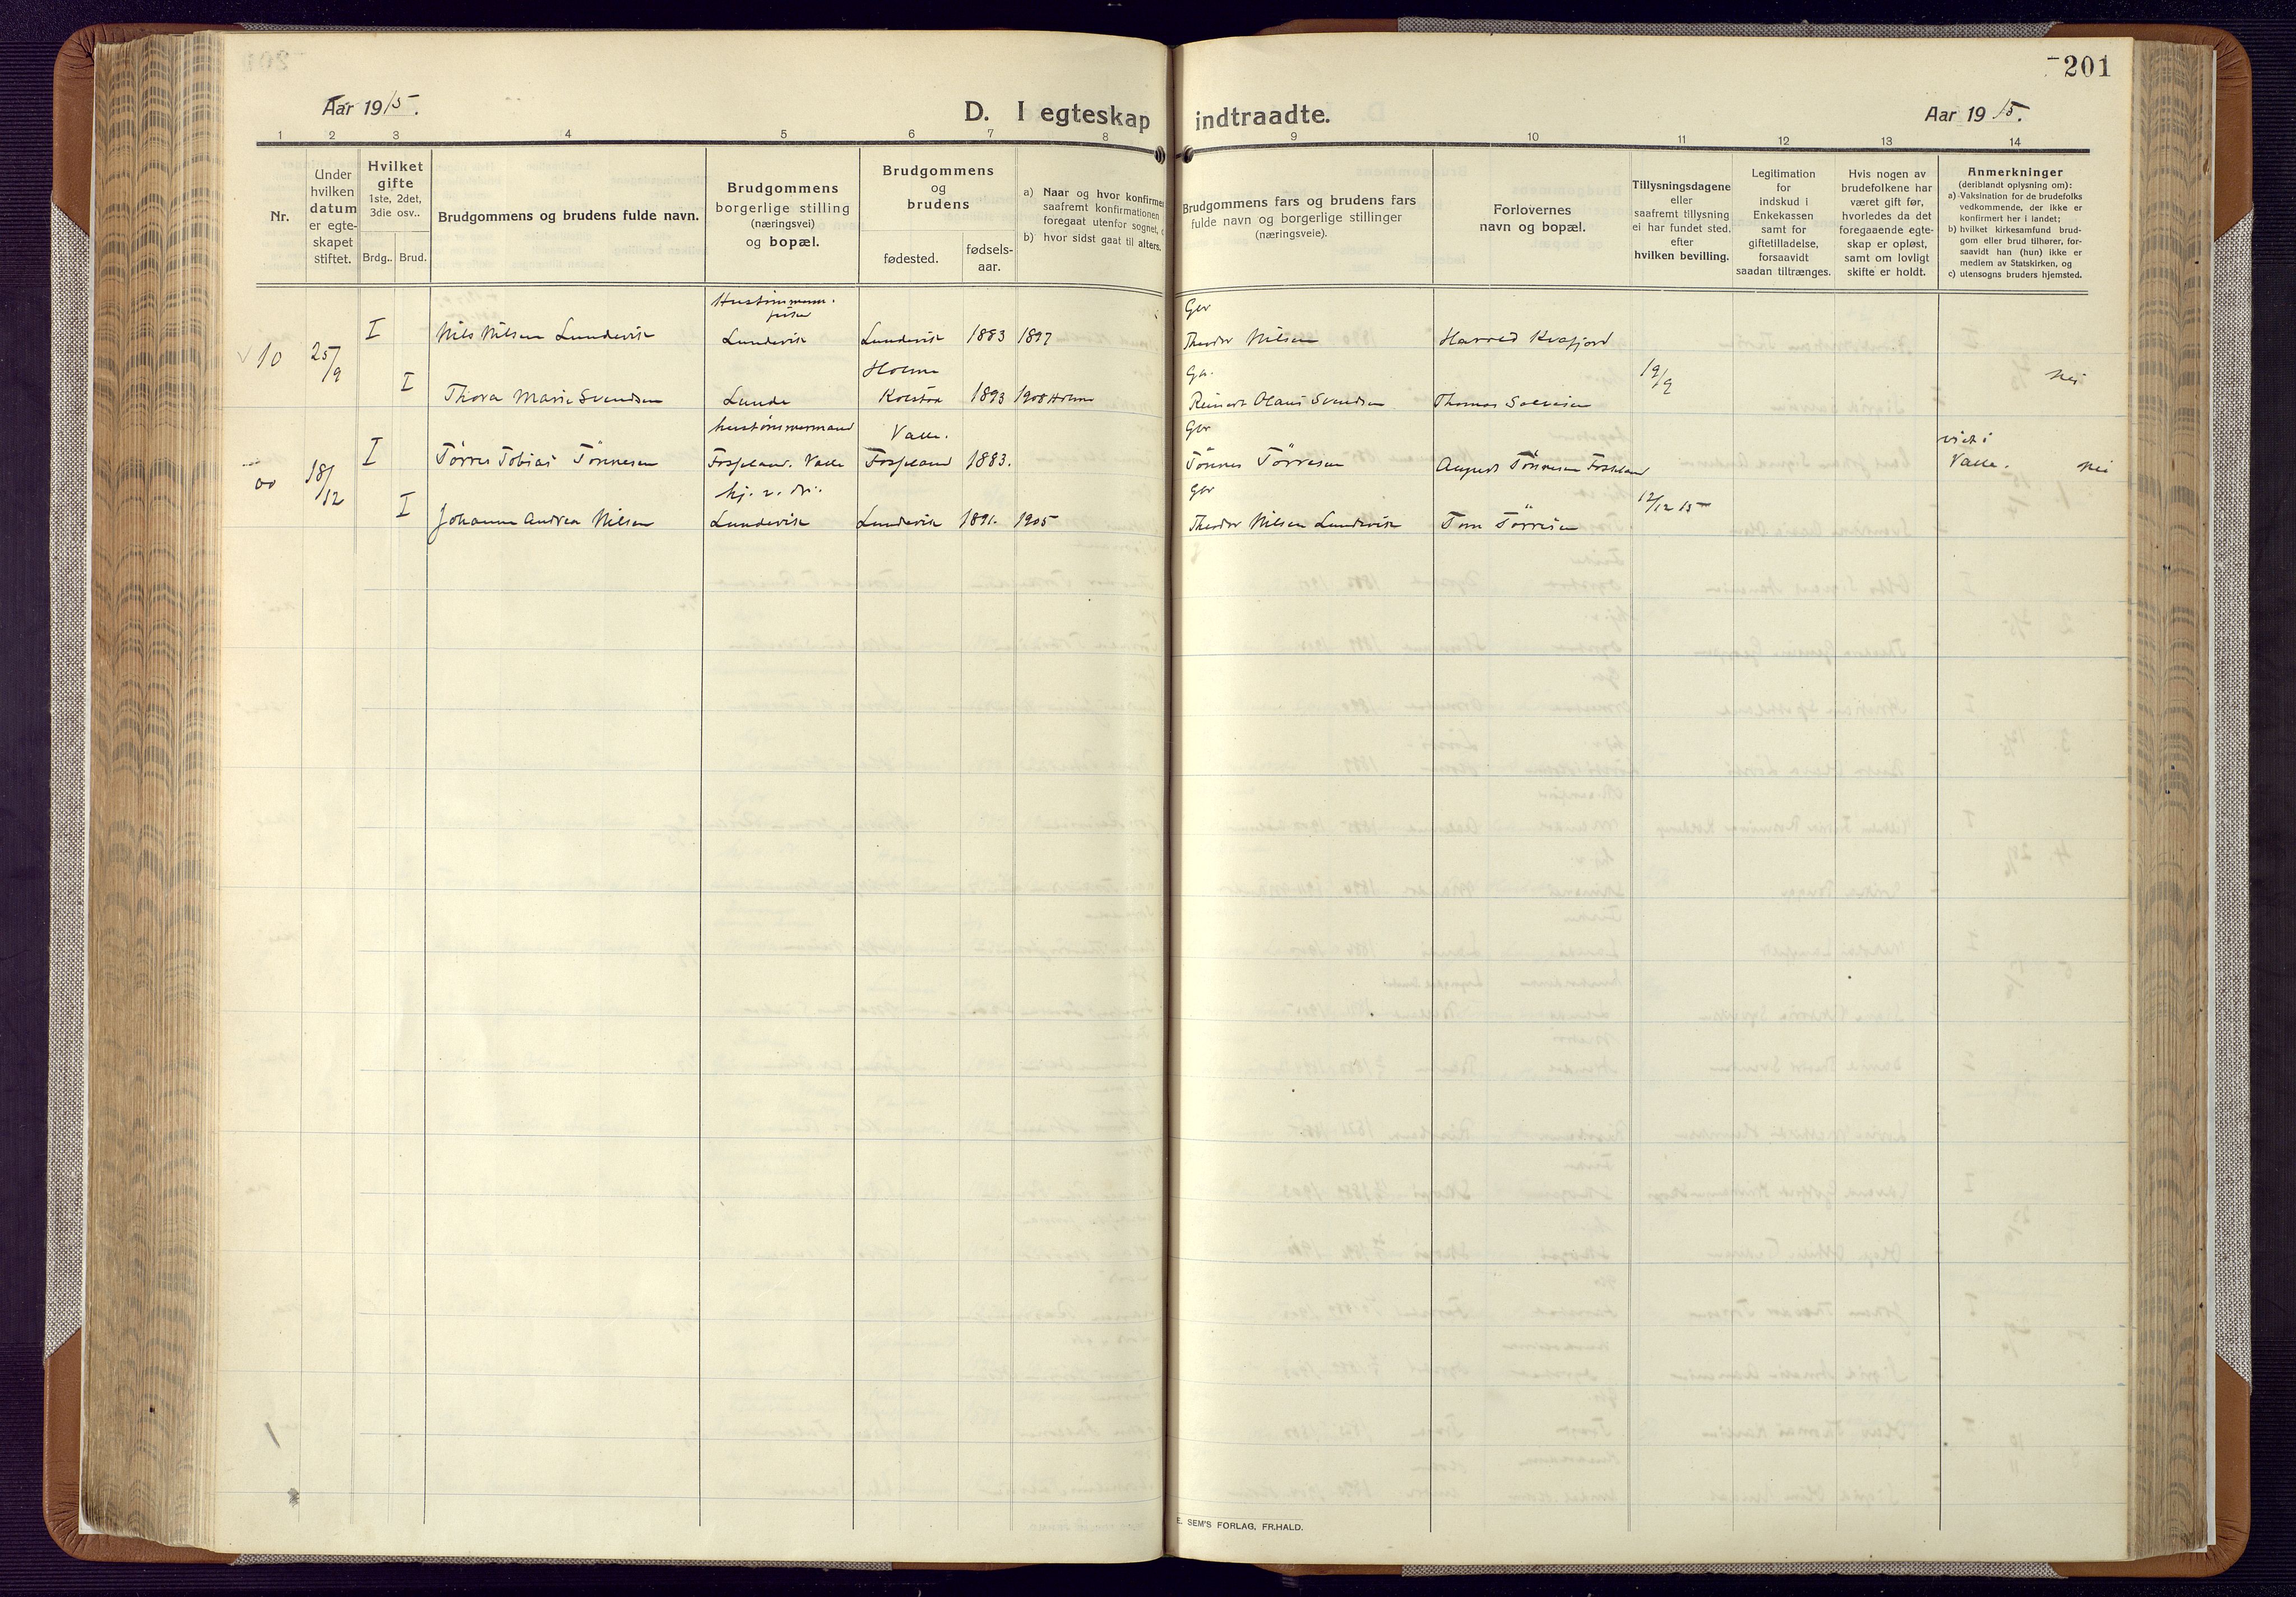 Aar 1915.
D. I egteskap indtraadte.
Aar 1915.
201
1 2 3 4 5 6 7 8 9 10 11 12 13 14
Nr.
Under hvilken datum er egte-skapet stiftet.
Hvilket gifte 1ste, 2det, 3die osv..
Brdg.. Brud.
Brudgommens og brudens fulde navn.
Brudgommens borgerlige stilling (næringsvei) og bopæl.
Brudgommens og brudens
fødested.
fødsels-aar.
a) Naar og hvor konfirme
saafremt konfirmationen
foregaat utenfor sognet,
b) hvor sidst gaat til alters.
Brudgommens fars og brudens fars
fulde navn og borgerlige stillinger
(næringsveie).
Forlovernes
navn og bopæl.
Tillysningsdagene
eller
saafremt tillysning
ei har fundet sted.
efter
hvilken bevilling.
Legitimation
for
indskud i
Enkekassen
samt for
giftetilladelse,
forsaavidt
saadan tiltrænges.
Hvis nogen av
brudefolkene har
været gift før,
hvorledes da det
foregaaende egte-
skap er opløst,
samt om lovligt
skifte er holdt.
Anmerkninger
(deriblandt oplysning om):
a) Vaksination for de brudefolks
vedkommende, der ikke er
konfirmert her i landet;
b) hvilket kirkesamfund brud-
gom eller brud tilhører, for-
saavidt han (hun) ikke er
medlem av Statskirken, og
c) utensogns bruders hjemsted.
Gbr
10 25/9 I Nils Nilsen Lundevik Lundevik Lundevik 1883 1897 Theodor Nilsen
Holme 19/9 nei
I Thora Marie Svendsen Lunde 1893 1908 Holme Reinert Olaus Svendsen Thomas
hustømmermand Valle. Gbr
18/12 I Tørres Tobias Tönnesen Fosseland. Valle Fosseland 1883. Tönnes Törresen August Tönnesen Fosseland viet i Valle. nei
Gbr 12/12 15
I Johanne Andrea Nilsen Lundevik Lundevik 1891. 1905 Theodor Nilsen Lundevik Tom Törresen
E. SEM'S FORLAG, FR.HALD.